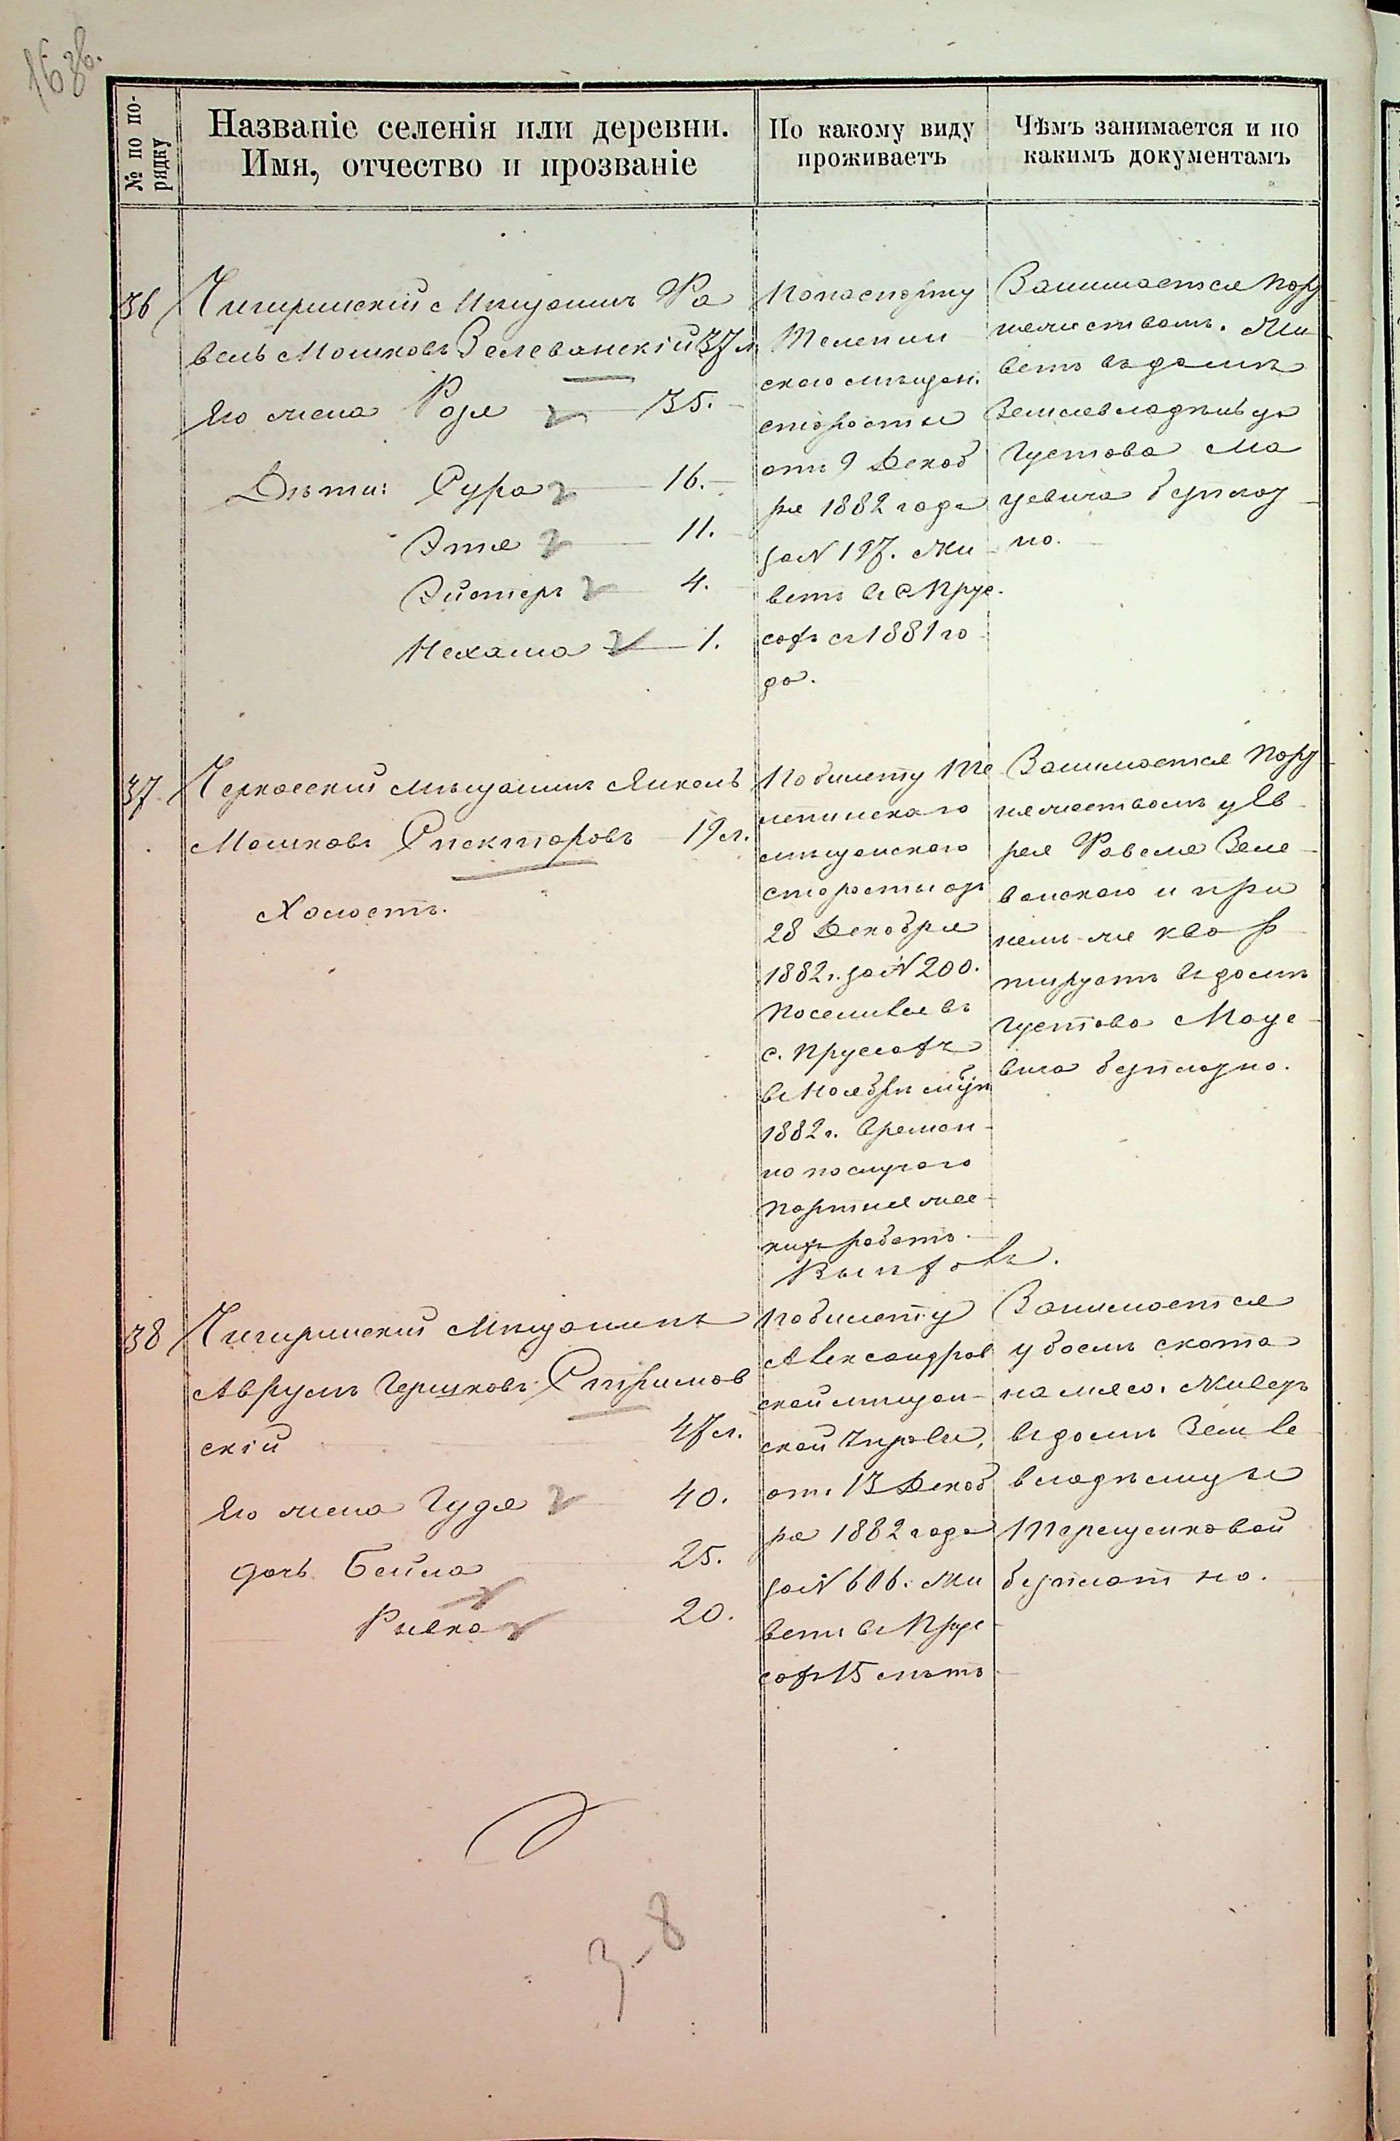 163 об.
№ по по-
рядку
Названіе селенія или деревни.
Имя, отчество и прозваніе
По какому виду
проживаетъ
Чѣмъ занимается и по
какимъ документамъ
36
Чигиринскій Мѣщанинъ Фа
вель Мошковъ Зелеванскій 37 л
Его жена Родя — 35.
Дѣти: Сура — 16.
Этя — 11.
Эйстеръ — 4.
Нехама — 1.
По паспорту
Телепин
скаго мѣщан.
старосты
отъ 9 Декаб
ря 1882 года
за N 197. Жи
ветъ въ с Прус
сахъ съ 1881 го
да.
Занимается порт
няжествомъ. Жи
ветъ въ домѣ
Землевладѣльца
Густава Ма
цевича безплат
но.
37
Черкасскій Мѣщанинъ Янкель
Мошковъ Спекторовъ — 19 л.
Холостъ.
По билету Те
лепинскаго
мѣщанского
старосты отъ
28 Декабря
1882 г. за N 200.
Поселился въ
с. Пруссахъ
въ Ноябрѣ мѣс
1882 г. времен
но по случаю
портняжес
кихъ работъ.
Выѣхалъ.
Занимается порт
няжествомъ у Ев
рея Фавеля Зеле
ванскаго и при
немъ же квар
тируетъ въ домѣ
Густава Маце
вича безплатно.
38
Чигиринскій Мѣщанинъ
Аврумъ Гершковъ Стримов
скій 47 л.
Его жена Гудя — 40.
дочь Бейла 25.
Ривка 20.
По билету
Александров
ской мѣщан
ской Управы,
отъ 13 Декаб
ря 1882 года
за N 606. Жи
ветъ въ Прус
сахъ 15 лѣтъ
Занимается
убоемъ скота
на мясо. Живетъ
въ домѣ Земле
владѣлицы
Терещенковой
безплатно.
3-8